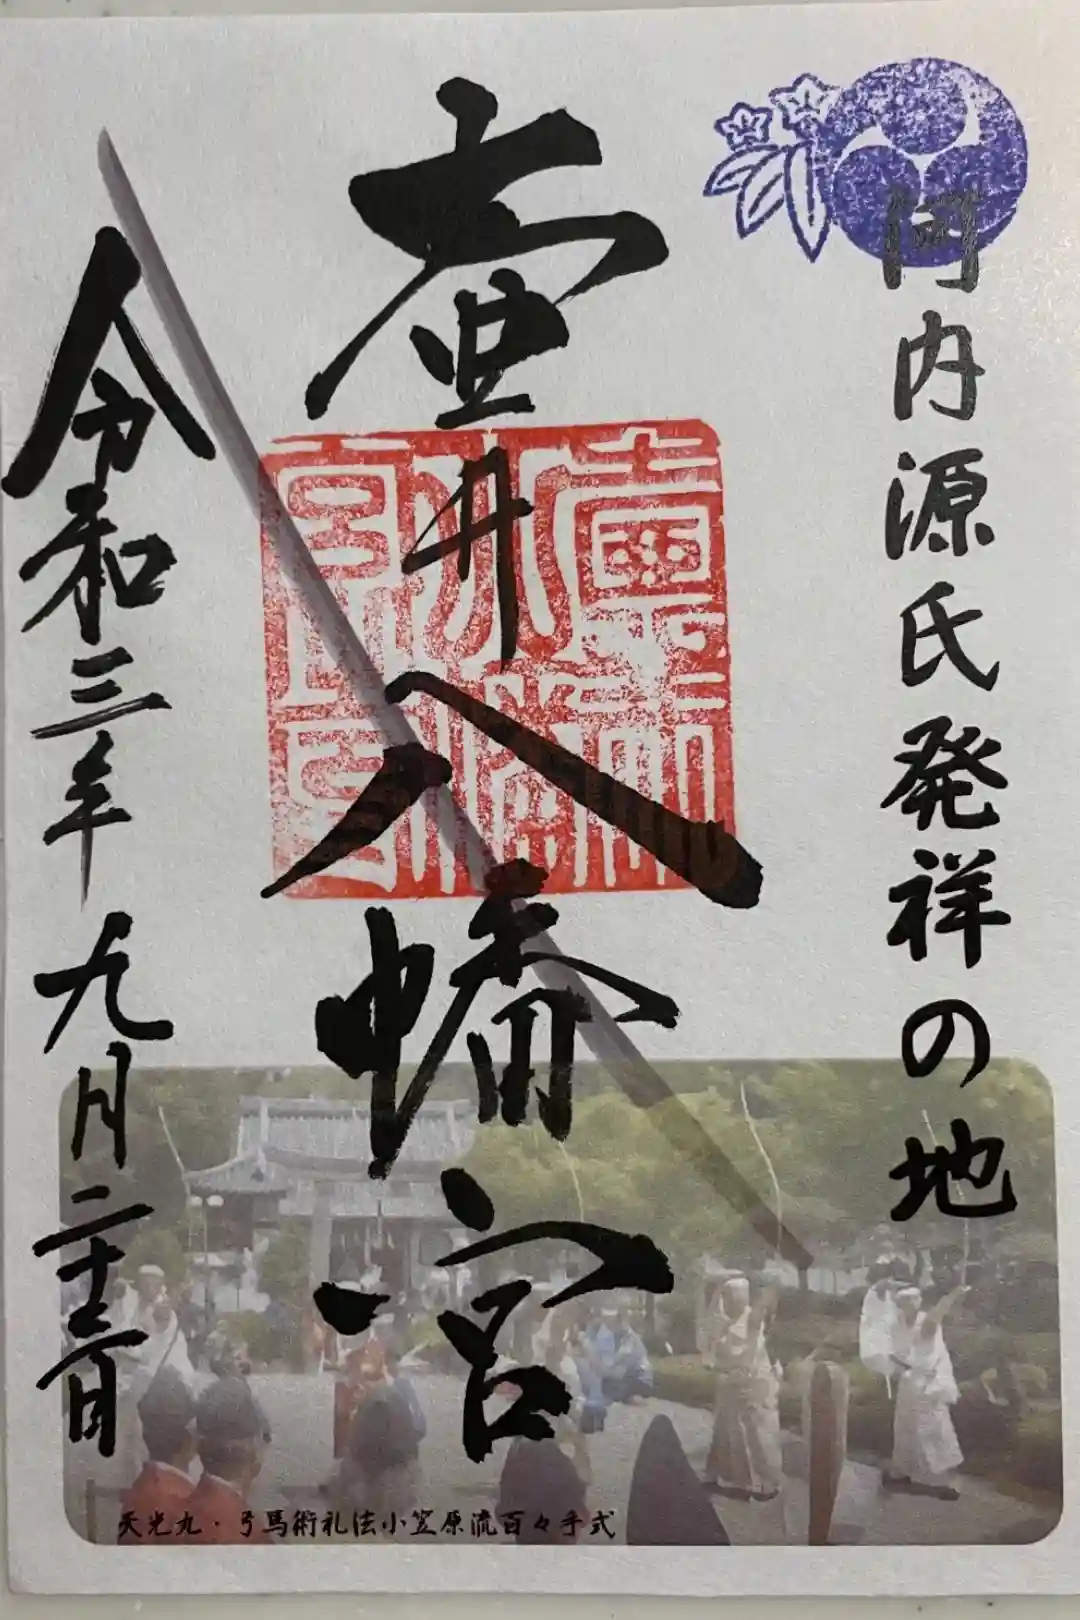 河内源氏発祥の地
壷井八幡宮
令和三年九月二十三日
天光丸・弓馬術礼法小笠原流百々手式